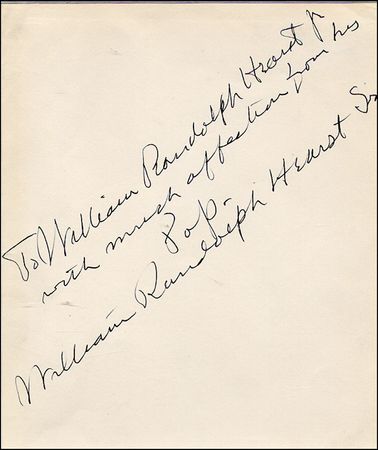 To William Randolph Hearst Jr
with much affection from his
Pop-
William Randolph Hearst Sr